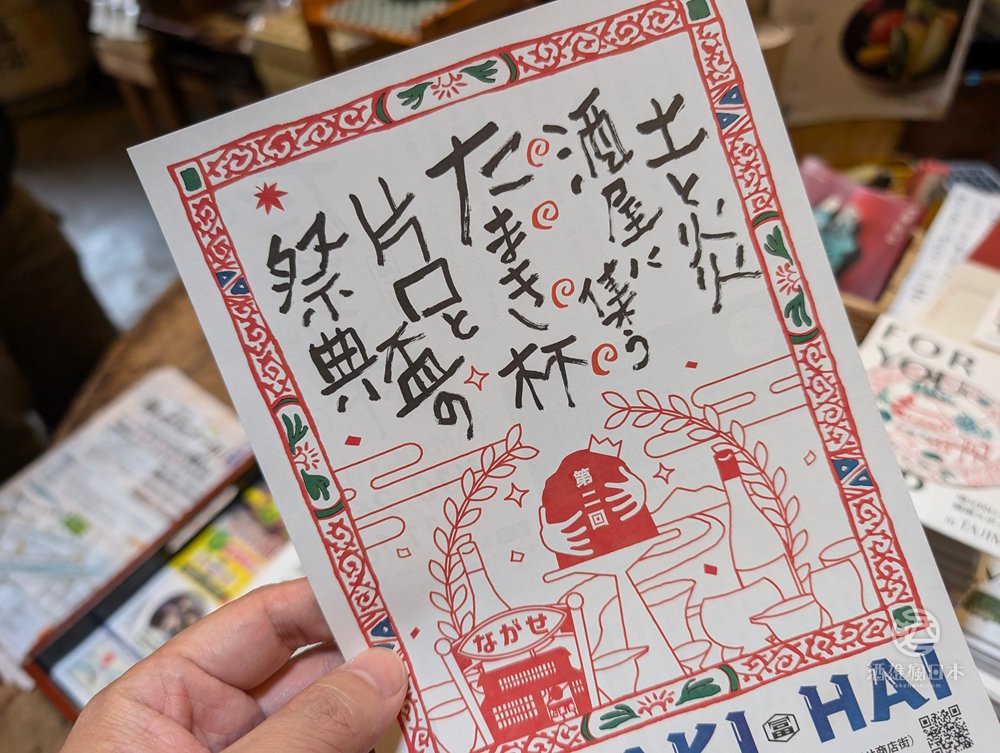 土と炎
酒屋に
たまき
杯
片口と盃の
祭典
第二回
ながせ
AKI 富 HAI
商店街)
FOR
YOU
酒雄瘋日本